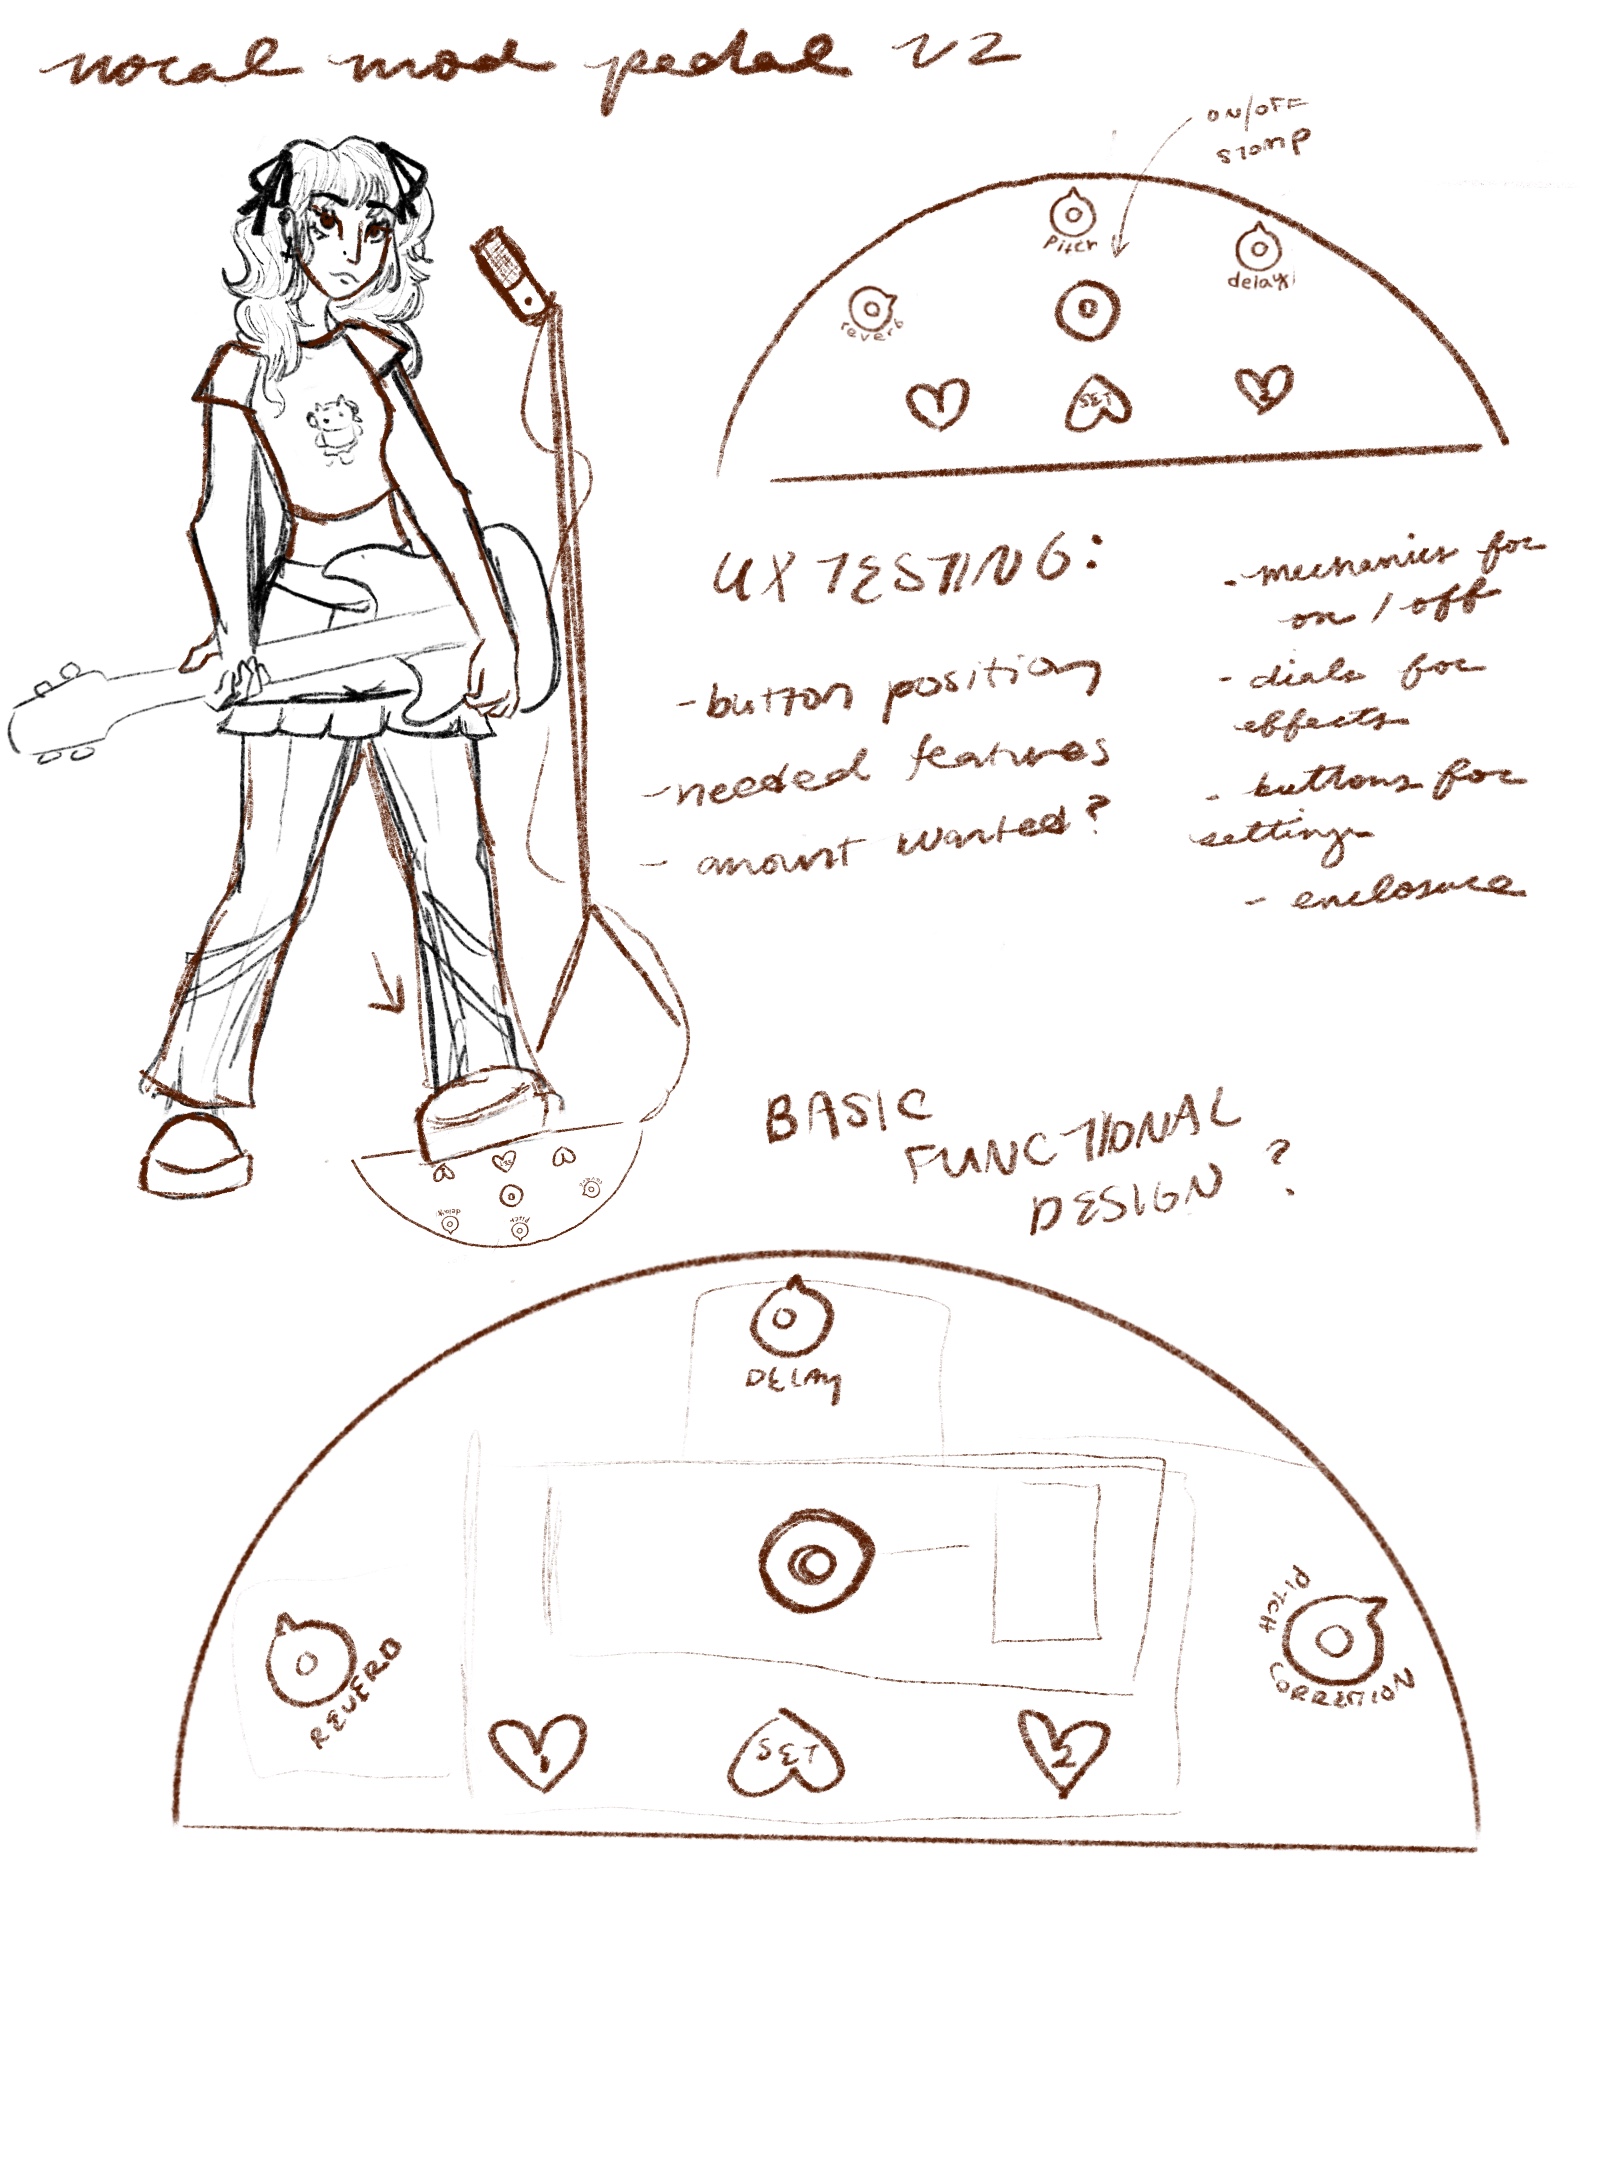 vocal mod pedal v2
ON/OFF
stomp
Pitch
delay
reverb
1
SET
2
UX TESTING:
- button position
- needed features
- amount wanted?
- mechanics for
on / off
- dials for
effects
- buttons for
settings
- enclosure
SET
delay
Pitch
BASIC
FUNCTIONAL
DESIGN ?
DELAY
REVERB
PITCH
CORRECTION
1
SET
2